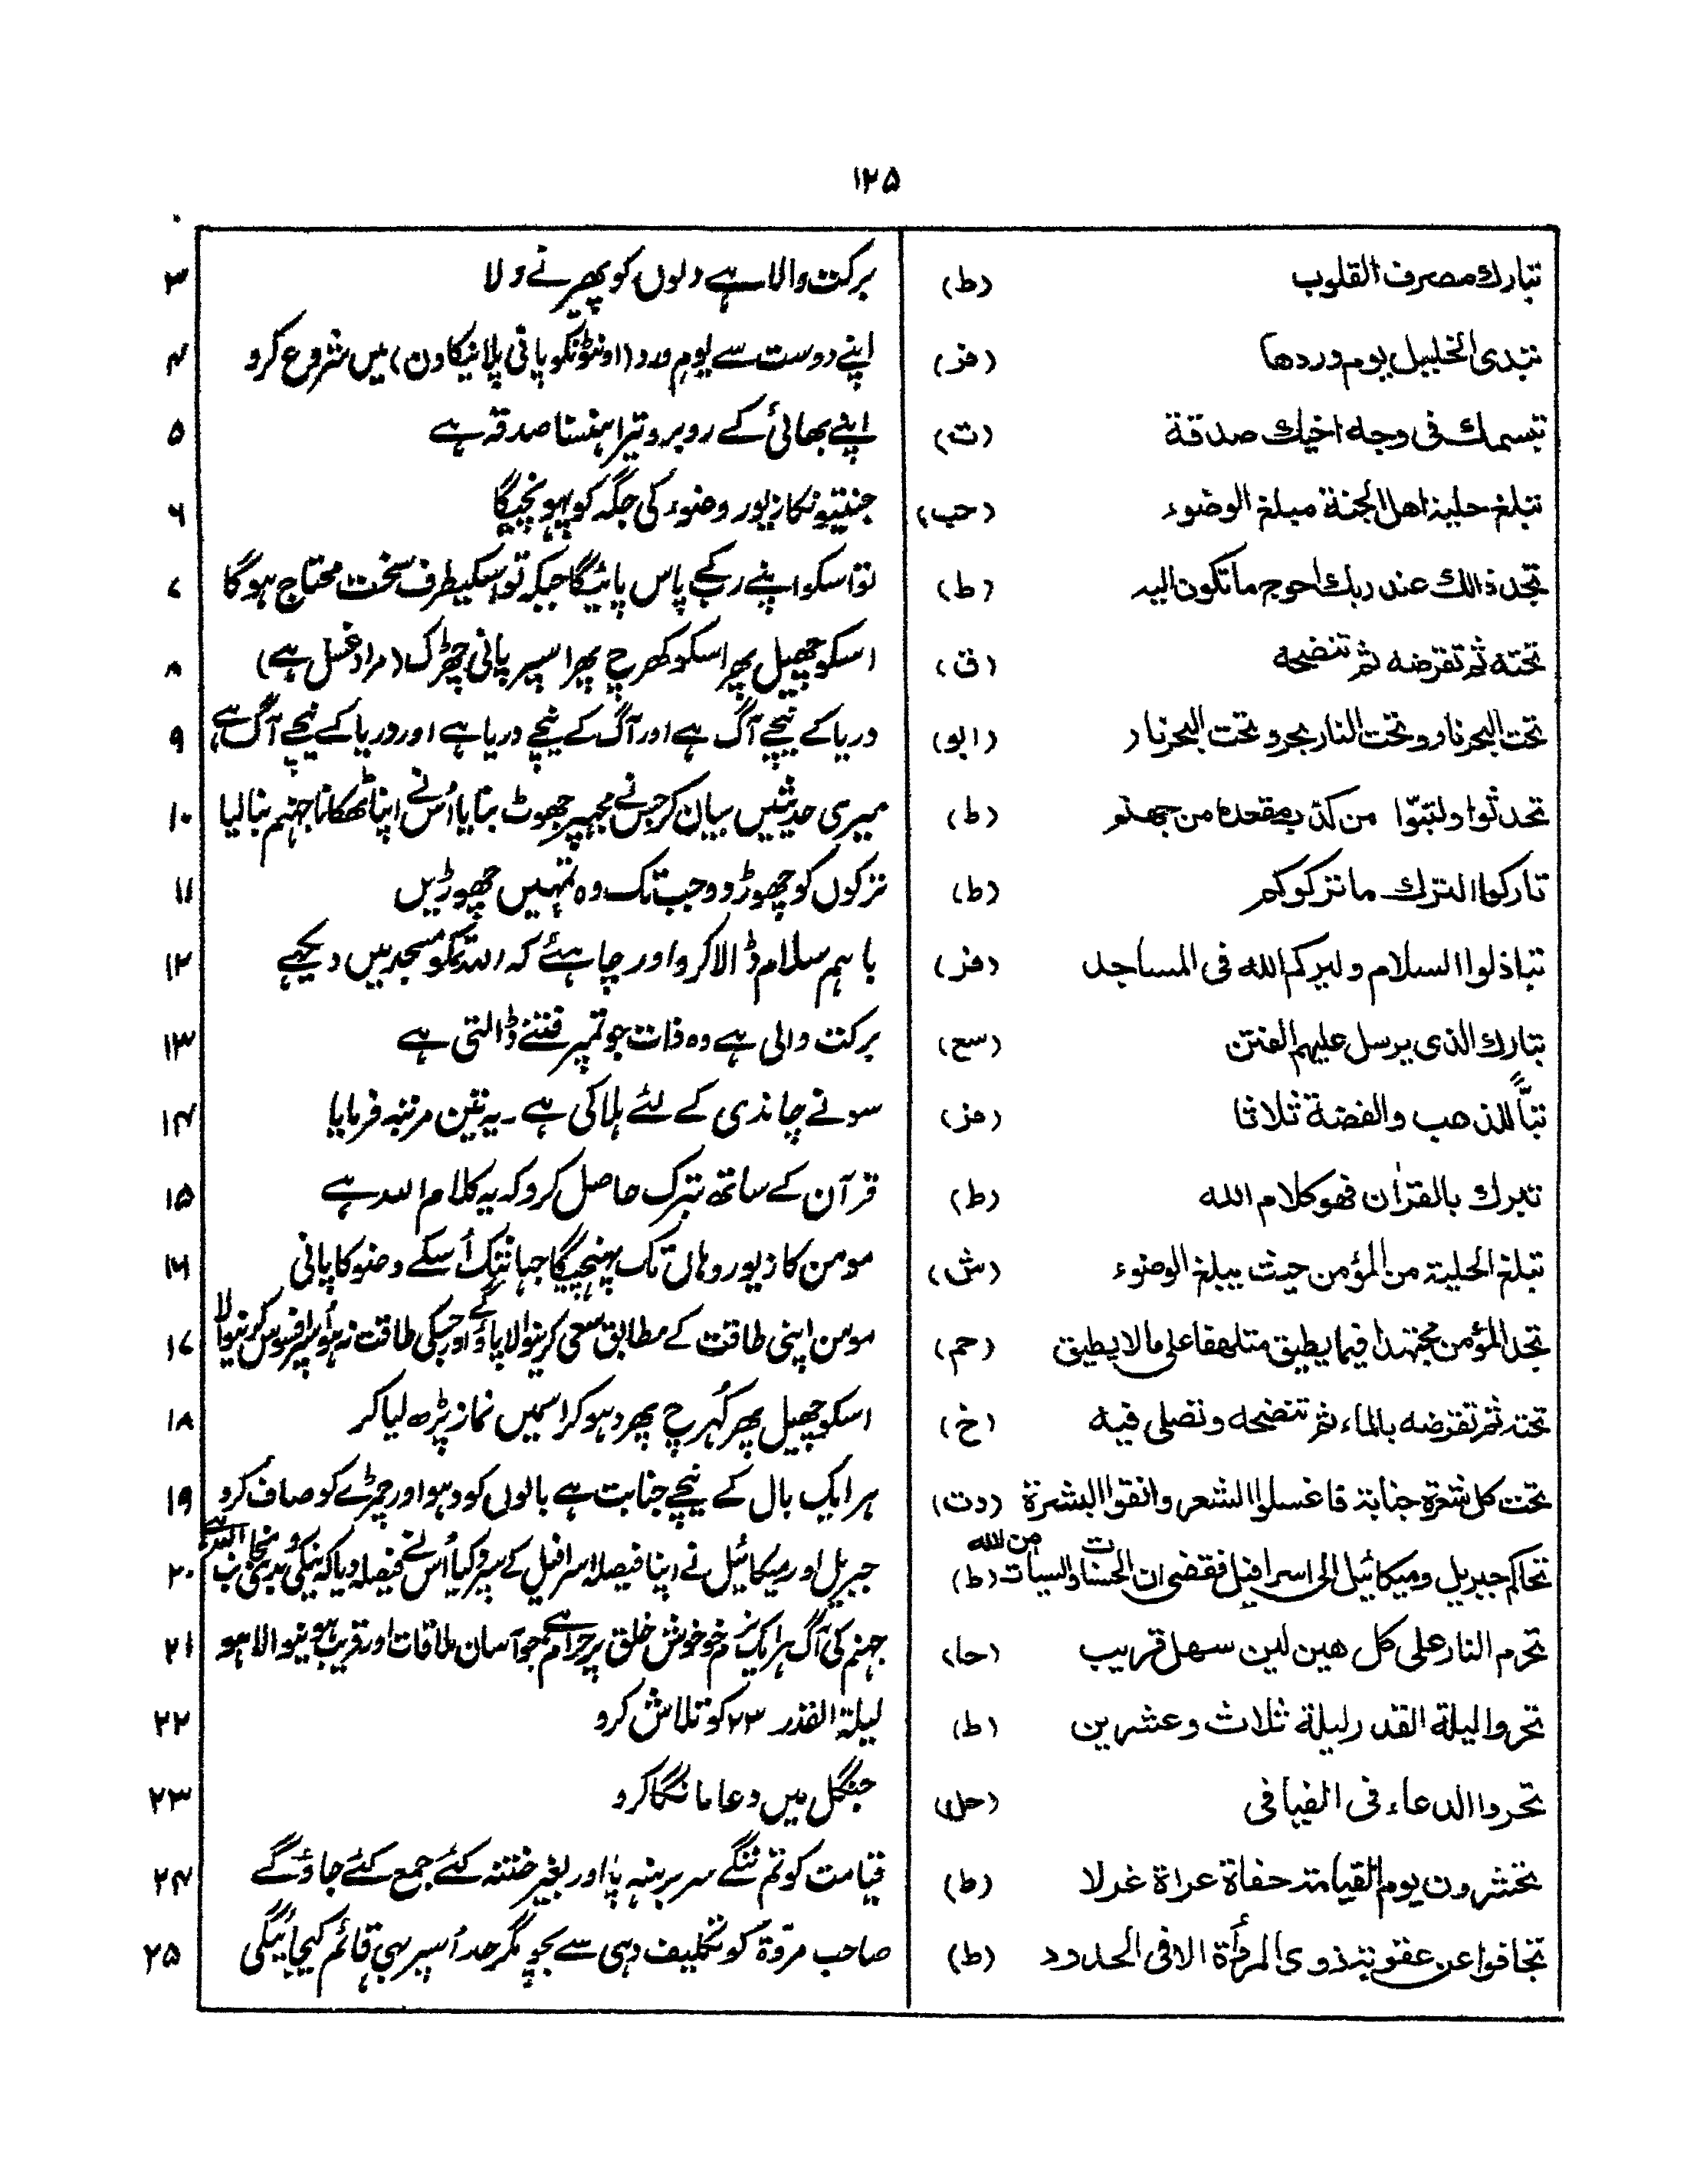 ۱۲۵
تبارك مصرف القلوب (ط) برکت والا ہے دلوں کو پھیرنے ولا ۳
تبدی الخلیل یوم وردها (فز) اپنے دوست سے یوم ورد (اونٹونکو پانی پلانیکا دن) میں شروع کرو ۴
تبسمك فی وجه اخیك صدقة (ت) اپنے بھائی کے روبرو تیرا ہنسنا صدقہ ہے ۵
تبلغ حلیة اهل الجنة مبلغ الوضوء (حب) جنتیونکا زیور وضوء کی جگہ کو پہونچیگا ۶
تجد ذالك عند ربك احوج ما تکون الیه (ط) تو اسکو اپنے رب کے پاس پائیگا جبکہ تو اسکیطرف سخت محتاج ہوگا ۷
تحته ثم تقرضه ثم تنضحه (ق) اسکو چھیل پھر اسکو کھرچ پھر اسپر پانی چھڑک (مراد غسل ہے) ۸
تحت البحر نار و تحت النار بحر و تحت البحر نار (ابو) دریا کے نیچے آگ ہے اور آگ کے نیچے دریا ہے اور دریا کے نیچے آگ ہے ۹
تحدثوا ولتبوّا من کذب مقعده من جهنم (ط) میری حدیثیں بیان کر جس نے مجھپر جھوٹ بنایا اُس نے اپنا ٹھکانا جہنم بنا لیا ۱۰
تارکوا الترك ما ترکوکم (ط) ترکوں کو چھوڑ دو جب تک وہ تمہیں چھوڑیں ۱۱
تباذلوا السلام و لیرکم الله فی المساجد (فز) باہم سلام ڈالا کرو اور چاہئے کہ اللہ تمکو مسجد میں دیکھے ۱۲
تبارك الذی یرسل علیهم الفتن (سع) برکت والی ہے وہ ذات جو تمپر فتنے ڈالتی ہے ۱۳
تبًّا للذهب والفضة ثلاثا (فز) سونے چاندی کے لئے ہلاکی ہے ۔ یہ تین مرتبہ فرمایا ۱۴
تبرك بالقرٰان فهو کلام الله (ط) قرآن کے ساتھ تبرک حاصل کرو کہ یہ کلام اللہ ہے ۱۵
تبلغ الحلیة من المؤمن حیث یبلغ الوضوء (ش) مومن کا زیور وہاں تک پہنچیگا جہانتک اُسکے وضو کا پانی ۱۶
تجد المؤمن مجتهدا فیما یطیق متلهفا علی ما لا یطیق (حم) مومن اپنی طاقت کے مطابق سعی کرینوالا پاؤ گے اور جسکی طاقت نہ ہو اُسپر افسوس کرنیوالا ۱۷
تحته ثم تقرضه بالماء ثم تنضحه و تصلی فیه (خ) اسکو چھیل پھر کُہرچ پھر دہو کر اسمیں نماز پڑھ لیا کر ۱۸
تحت کل شعرة جنابة فاغسلوا الشعر وانقوا البشرة (دت) ہر ایک بال کے نیچے جنابت ہے بالوں کو دہو اور چمڑے کو صاف کرو ۱۹
تحاکم جبریل و میکائیل الی اسرافیل فقضی ان الحسنات والسیات من الله (ط) جبریل اور میکائیل نے اپنا فیصلہ اسرافیل کے سپرد کیا اُس نے فیصلہ دیا کہ نیکی و بدی منجانب اللہ ہے ۲۰
تحرم النار علی کل هین لین سهل قریب (حا) جہنم کی آگ ہر ایک نرم خو خوش خلق پر حرام ہے جو آسان ملاقات اور قریب ہونیوالا ہو ۲۱
تحروا لیلة القدر لیلة ثلاث وعشرین (ط) لیلۃ القدر ۲۳ کو تلاش کرو ۲۲
تحروا الدعاء فی الفیافی (حل) جنگل میں دعا مانگا کرو ۲۳
تحشرون یوم القیامة حفاة عراة غرلا (ط) قیامت کو تم ننگے سر برہنہ پا اور بغیر ختنہ کئے جمع کئے جاؤ گے ۲۴
تجافوا عن عقوبة ذوی المرؤة الا فی الحدود (ط) صاحب مروّۃ کو تکلیف دہی سے بچو مگر حد اُسپر بھی قائم کیجائیگی ۲۵